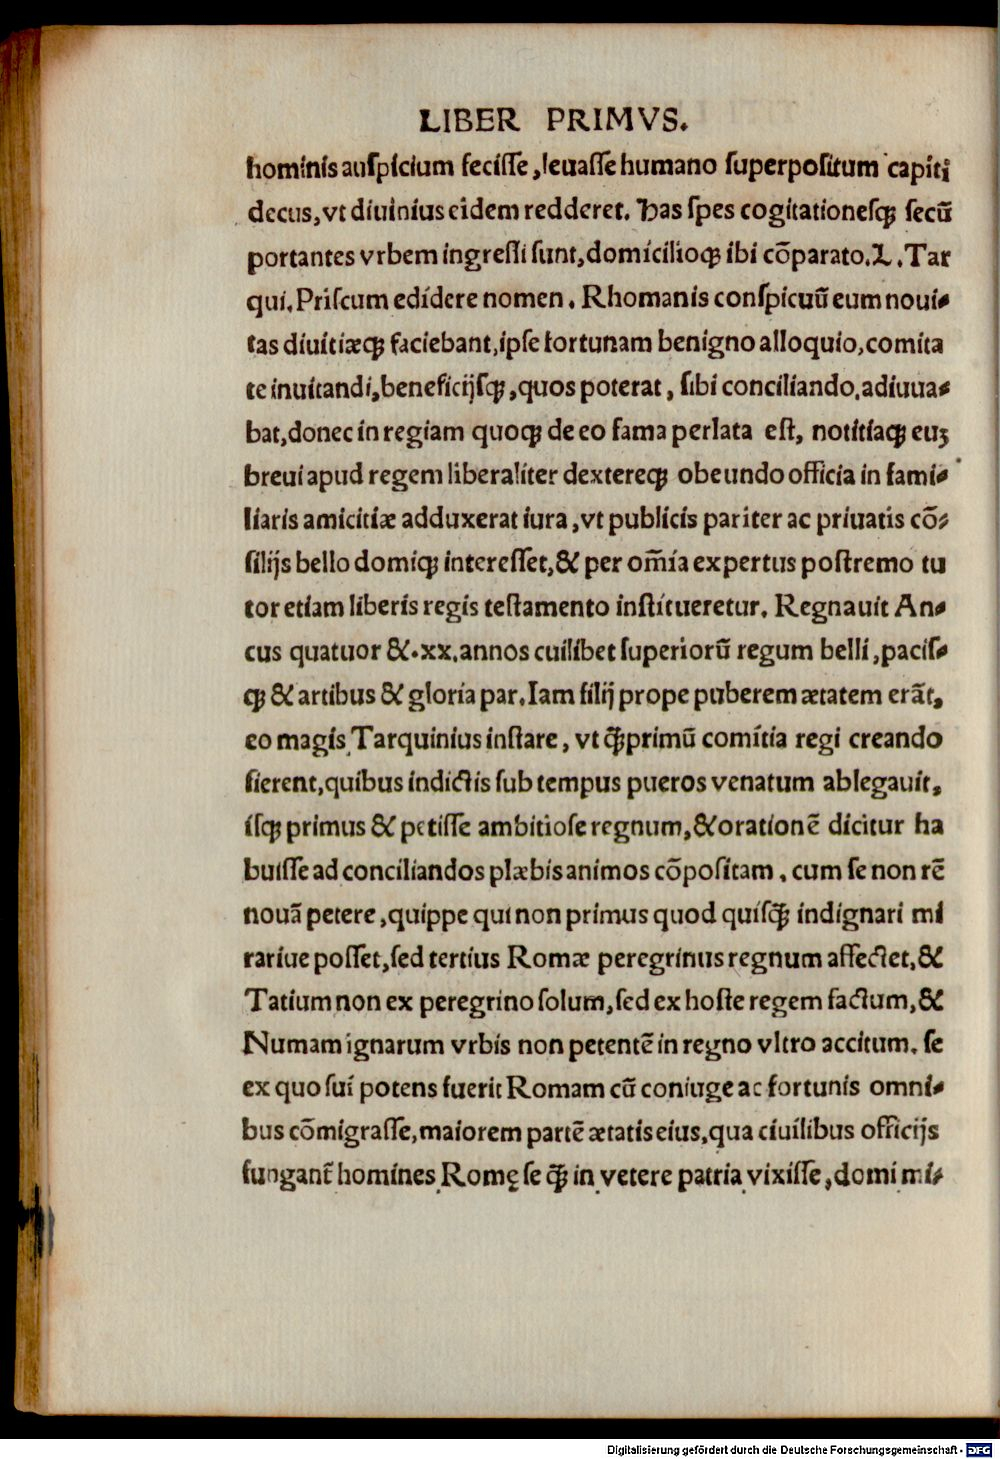 LIBER PRIMVS.
hominis auſpicium feciſſe, leuaſſe humano ſuperpoſitum capiti
decus, vt diuinius eidem redderet. Has ſpes cogitationeſqꝫ ſecū
portantes vrbem ingreſſi ſunt, domicilioqꝫ ibi cōparato. L. Tar
qui. Priſcum edidere nomen. Rhomanis conſpicuū eum noui-
tas diuitiæqꝫ faciebant, ipſe fortunam benigno alloquio, comita
te inuitandi, beneficijſqꝫ, quos poterat, ſibi conciliando, adiuua-
bat, donec in regiam quoqꝫ de eo fama perlata eſt, notitiaqꝫ euꝫ
breui apud regem liberaliter dextereqꝫ obeundo officia in fami-
liaris amicitiæ adduxerat iura, vt publicis pariter ac priuatis cō-
ſilijs bello domiqꝫ intereſſet, & per om̄ia expertus poſtremo tu
tor etiam liberis regis teſtamento inſtitueretur. Regnauit An-
cus quatuor &.xx. annos cuilibet ſuperiorū regum belli, pacis-
qꝫ & artibus & gloria par. Iam filij prope puberem ætatem erāt,
eo magis Tarquinius inſtare, vt q̄ꝫprimū comitia regi creando
fierent, quibus indictis ſub tempus pueros venatum ablegauit,
iſqꝫ primus & petiſſe ambitioſe regnum, & orationē dicitur ha
buiſſe ad conciliandos plæbis animos cōpoſitam, cum ſe non rē
nouā petere, quippe qui non primus quod quiſq̄ꝫ indignari mi
rariue poſſet, ſed tertius Romæ peregrinus regnum affectet, &
Tatium non ex peregrino ſolum, ſed ex hoſte regem factum, &
Numam ignarum vrbis non petentē in regno vltro accitum. ſe
ex quo ſui potens fuerit Romam cū coniuge ac fortunis omni-
bus cōmigraſſe, maiorem partē ætatis eius, qua ciuilibus officijs
fungant̄ homines Romę ſe q̄ꝫ in vetere patria vixiſſe, domi mi-
Digitalisierung gefördert durch die Deutsche Forschungsgemeinschaft - DFG